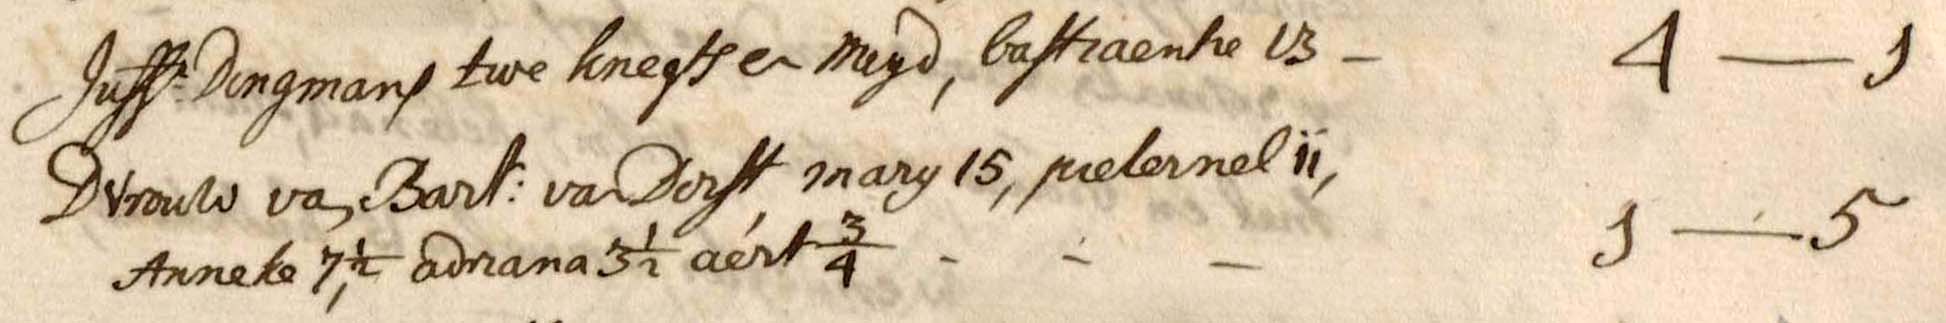 Juffr. Dingmans twe knegts en Meyd, bastiaenke 13 - 4 — 1
D vrouw van Bart: van Dorst, mary 15, pieternel 11,
Anneke 7 1/2 adriana 3 1/2 aert 3/4 - - - 1 — 5